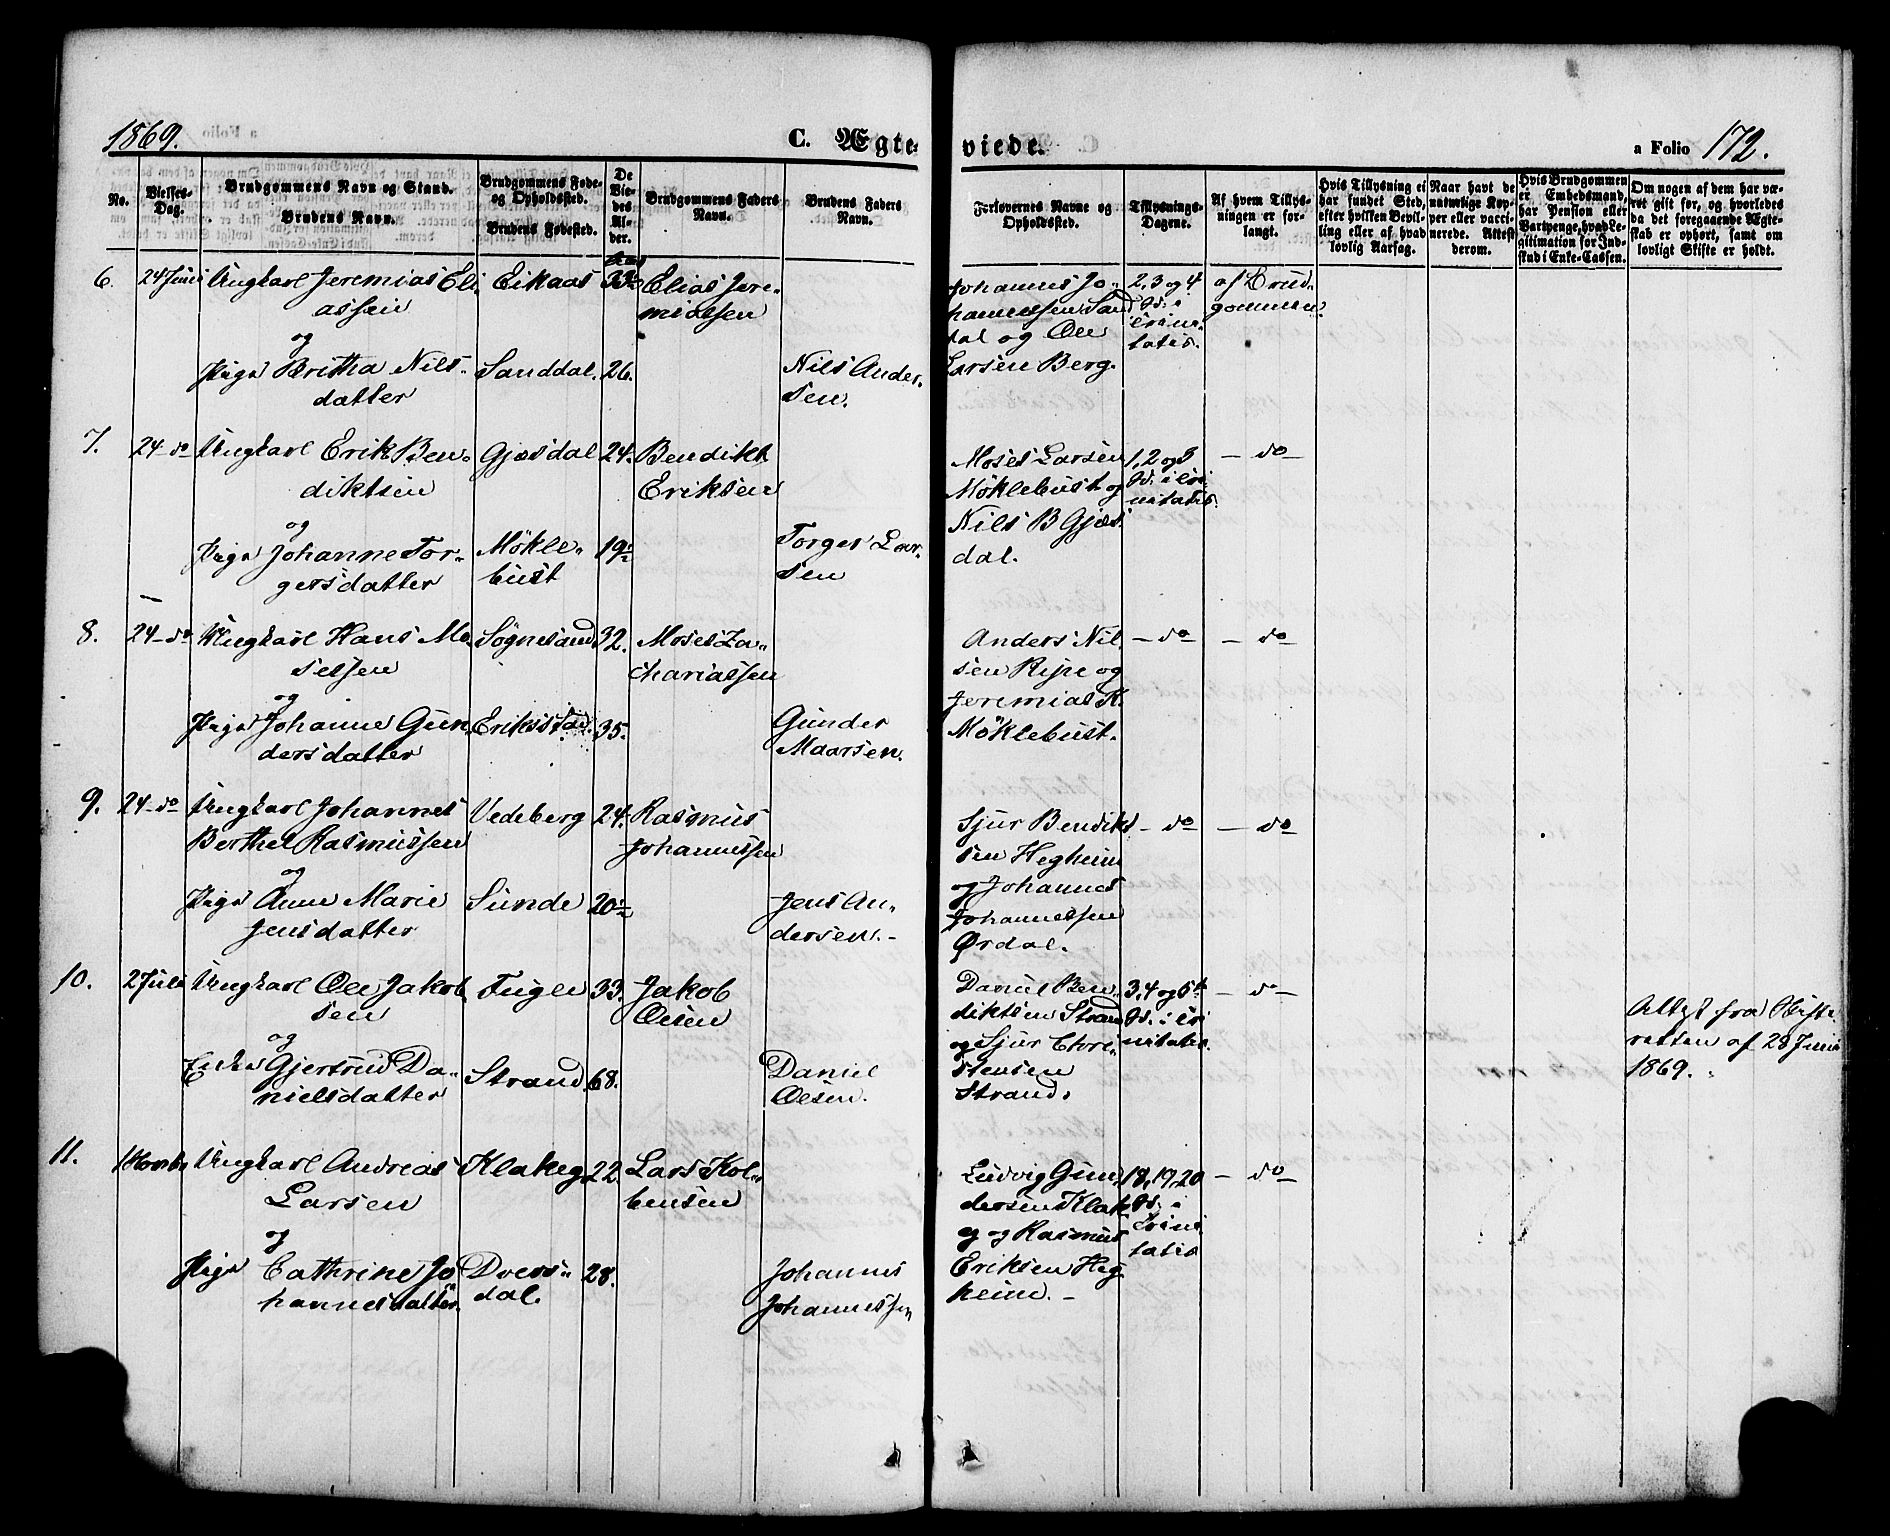 1869.
C. Ægteviede.
a Folio 172.
No.
Vielses-
Dag.
Brudgommens Navn og Stand.
Brudens Navn.
Brudgommens Føde-
og Opholdssted.
Brudens Fødested.
De
Vie-
des
Al-
der.
Brudgommens Faders
Navn.
Brudens Faders
Navn.
Forlovernes Navne og
Opholdssted.
Tillysnings-
Dagene.
Af hvem Tillys-
ningen er for-
langt.
Hvis Tillysning ei
har fundet Sted,
efter hvilken Bevil-
ling eller af hvad
lovlig Aarsag.
Naar havt de
naturlige Kop-
per eller vacci-
nerede. Attest
derom.
Hvis Brudgommen
er Embedsmand,
har Pension eller
Vartpenge, hvad Le-
gitimation for Ind-
skud i Enke-Cassen.
Om nogen af dem har væ-
ret gift før, og hvorledes
da det foregaaende Ægte-
skab er ophørt, samt om
lovligt Skifte er holdt.
6. 24 Juni Ungkarl Jeremias Eli-
assen
og
Pige Britha Nils-
datter
Eikaas
Sanddal.
26.
Elias Jere-
miassen
Nils Ander-
sen.
Johannes Jo-
hannessen Sand
dal og Ole
Larsen Berg.
2, 3 og 4
S. i
trini-
tatis.
af Brud-
gommen.
7. 24 do Ungkarl Erik Ben-
diktsen
og
Pige Johanne Tor-
gersdatter
Gjesdal
Møkle-
bust
24.
19½
Bendikt
Eriksen
Torger Lar-
sen
Moses Larsen
Møklebust og
Nils B Gjes
dal.
1, 2 og 3
S. i tri
nitatis.
- do -
8. 24 do Ungkarl Hans Mo-
sessen
og
Pige Johanne Gun-
dersdatter
Sognesand
Erikstad.
32.
35.
Moses Za-
chariassen
Gunder
Maarsen.
Anders Nil
sen Ripe og
Jeremias K.
Møklebust.
- do -
- do -
9. 24 do Ungkarl Johannes
Berthel Rasmussen
og
Pige Anne Marie
Jensdatter
Vedeberg
Sunde
24.
20½
Rasmus
Johannessen
Jens An-
dersen. -
Sjur Bendikt
sen Hegheim
og Johannes
Johannessen
Ørdal.
- do -
- do -
10. 2 Juli Ungkarl Ole Jakob
sen
og
Enke Gjertrud Da-
nielsdatter
Fugle
Strand.
33.
68.
Jakob
Olsen
Daniel
Olsen.
Daniel Ben-
diktsen Strand
og Sjur Chri-
stensen
Strand.
3, 4 og 5te
S. i tri
nitatis.
- do -
Attest fra Skifte-
retten af 28 Juni
1869.
11. 1 Novbr Ungkarl Andreas
Larsen
og
Pige Cathrine Jo
hannesdatter.
Klakeg
dal.
22.
28.
Lars Kol-
bensen
Johannes
Johannessen
Ludvig Gun
dersen Klak
eg og Rasmus
Eriksen Heg
heim. -
18, 19, 20
S. i
Trini
tatis
- do -